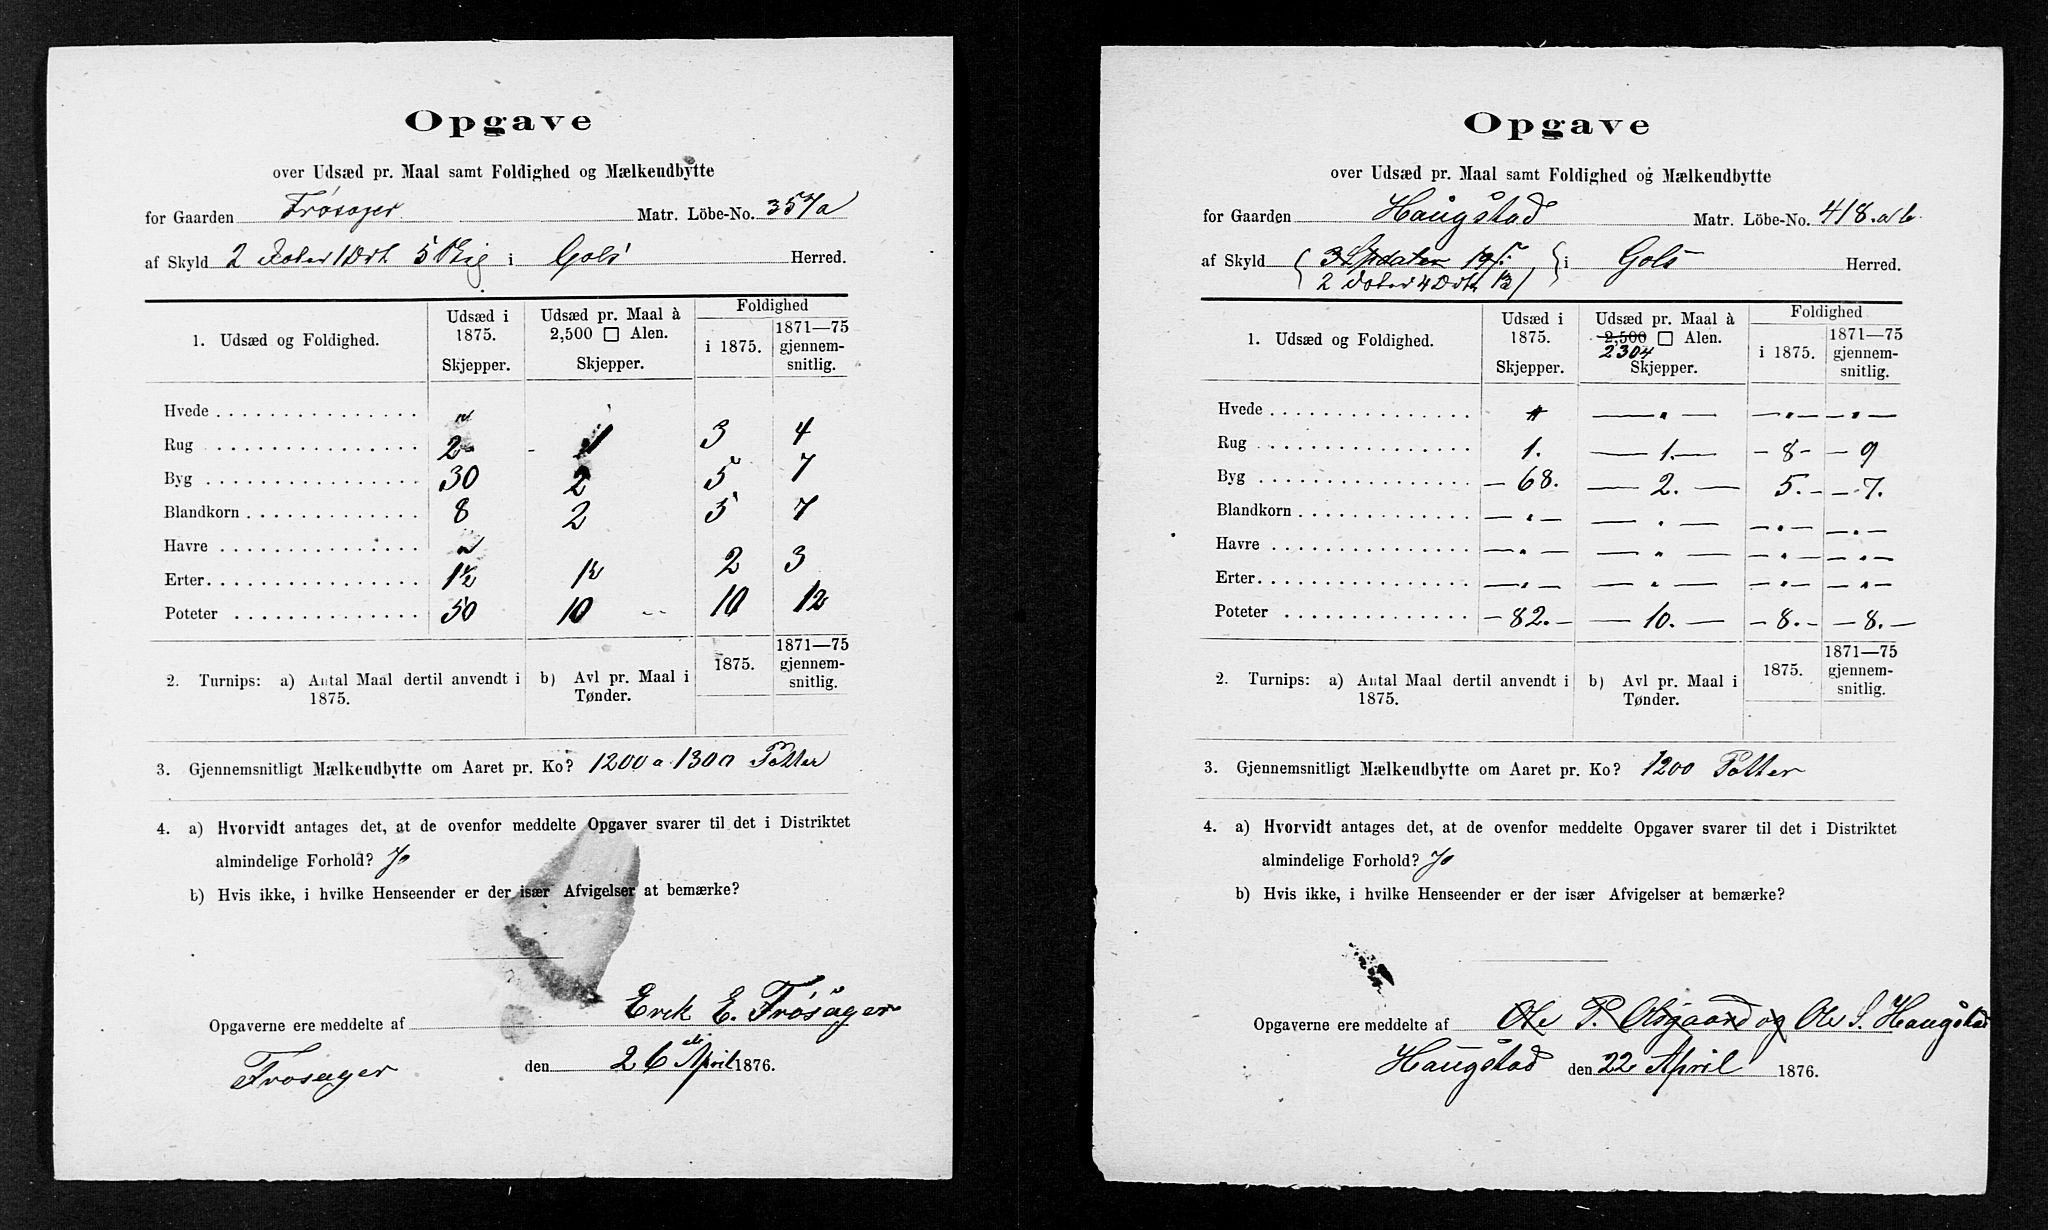 Opgave
over Udsæd pr. Maal samt Foldighed og Mælkeudbytte
for Gaarden Frøsager Matr. Löbe-No. 357a
af Skyld 2 Daler 1 Ort 5 Skig i Gols Herred.
1. Udsæd og Foldighed.
Udsæd i 1875. Skjepper.
Udsæd pr. Maal à 2,500 □ Alen. Skjepper.
Foldighed
i 1875.
1871—75 gjennem-snitlig.
Hvede "
Rug 2 - 1 3 4
Byg 30 2 5 7
Blandkorn 8 2 5 7
Havre "
Erter 1½ 1½ 2 3
Poteter 50 10 10 12
2. Turnips: a) Antal Maal dertil anvendt i 1875.
b) Avl pr. Maal i Tønder.
1875.
1871—75 gjennem-snitlig.
3. Gjennemsnitligt Mælkeudbytte om Aaret pr. Ko? 1200 a 1300 Potter
4. a) Hvorvidt antages det, at de ovenfor meddelte Opgaver svarer til det i Distriktet
almindelige Forhold? Jo
b) Hvis ikke, i hvilke Henseender er der især Afvigelser at bemærke?
Opgaverne ere meddelte af Erik E. Frøsager
Frøsager den 26de April 1876.
Opgave
over Udsæd pr. Maal samt Foldighed og Mælkeudbytte
for Gaarden Haugstad Matr. Löbe-No. 418.ab.
af Skyld i Gols Herred.
2 Daler 4 Ort 13
1. Udsæd og Foldighed.
Udsæd i 1875. Skjepper.
Udsæd pr. Maal à 2,500 □ Alen. 2304 Skjepper.
Foldighed
i 1875.
1871—75 gjennem-snitlig.
Hvede " — " — — " — — " —
Rug 1. — 1. — — 8 — — 9
Byg — 68. — 2. — 5. — — 7.
Blandkorn — " — — " — — " — — " —
Havre — " — — " — — " — — " —
Erter — " — — " — — " — — " —
Poteter — 82. — — 10. — — 8. — — 8. —
2. Turnips: a) Antal Maal dertil anvendt i 1875.
b) Avl pr. Maal i Tønder.
1875.
1871—75 gjennem-snitlig.
3. Gjennemsnitligt Mælkeudbytte om Aaret pr. Ko? 1200 Potter
4. a) Hvorvidt antages det, at de ovenfor meddelte Opgaver svarer til det i Distriktet
almindelige Forhold? Jo
b) Hvis ikke, i hvilke Henseender er der især Afvigelser at bemærke?
Opgaverne ere meddelte af Ole P. Olsgaard og Ole S. Haugstad
Haugstad den 22 April 1876.